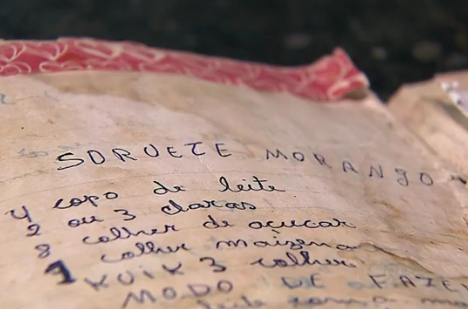 SORVETE MORANGO
4 copo de leite
2 ou 3 claras
8 colher de açucar
1 colher maizena
KUIK 3 colher
MODO DE FAZE